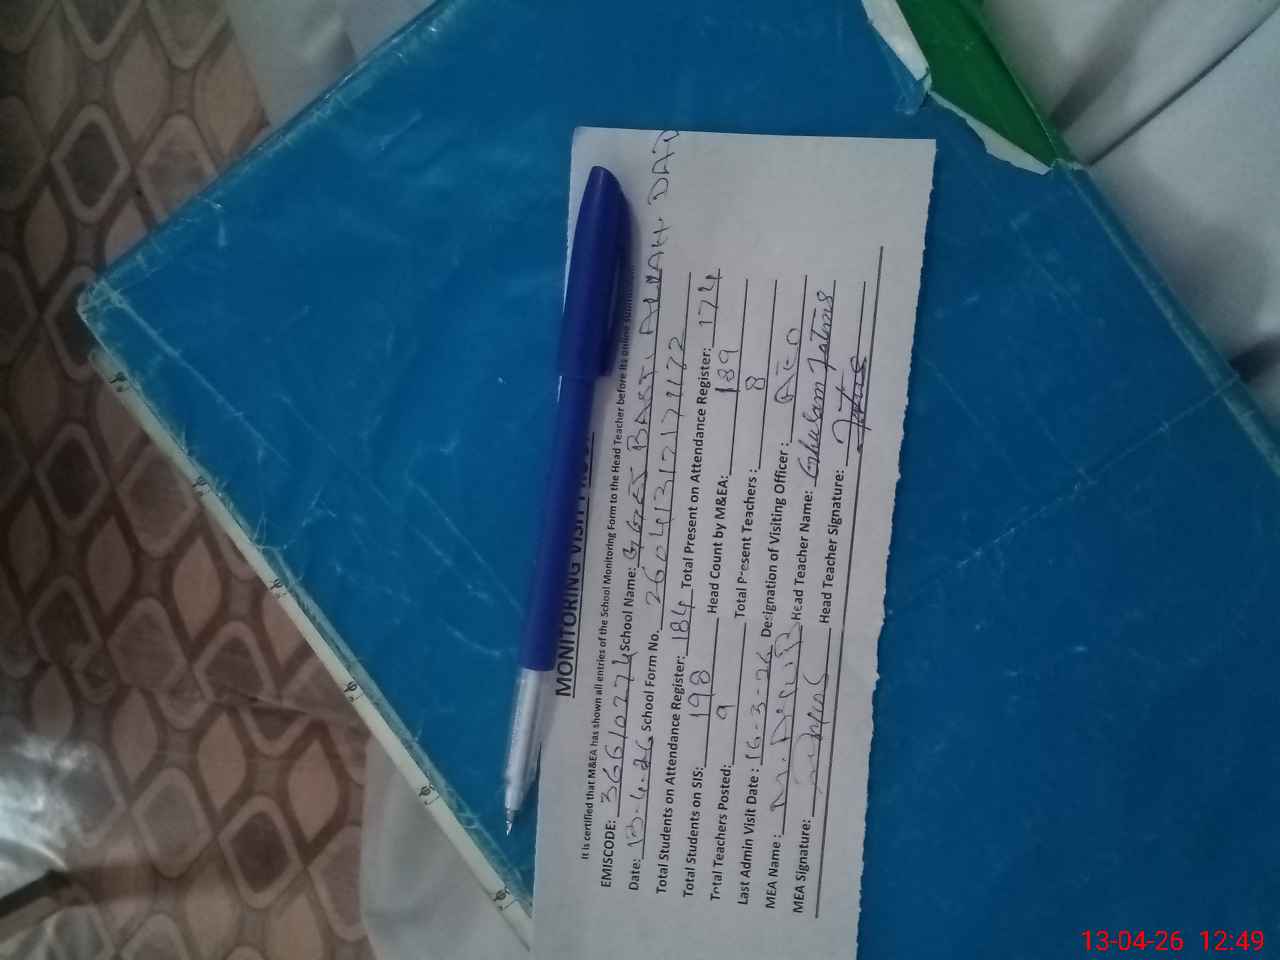 MONITORING VISIT
It is certified that M&EA has shown all entries of the School Monitoring Form to the Head Teacher before its online
EMISCODE: 36610274 School Name: GGES BASTI ALLAH DAD
Date: 13-4-26 School Form No. 2604131217172
Total Students on Attendance Register: 184 Total Present on Attendance Register: 174
Total Students on SIS: 198 Head Count by M&EA: 189
Total Teachers Posted: 9 Total Present Teachers: 8
Last Admin Visit Date: 16-3-26 Designation of Visiting Officer: AEO
MEA Name: M. Head Teacher Name: Ghulam Fatima
MEA Signature: Head Teacher Signature:
13-04-26 12:49